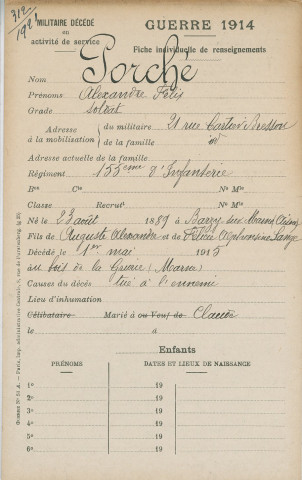 312/192
MILITAIRE DÉCÉDÉ
en
activité de service
GUERRE 1914
Fiche individuelle de renseignements
Nom Porché
Prénoms Alexandre Félix
Grade soldat
Adresse à la mobilisation du militaire 21 rue Cartier Bresson
de la famille id
Adresse actuelle de la famille
Régiment 155ème d'Infanterie
Bon Cie No Mle
Classe Recrut No Mle
Né le 23 août 1889 à Barzy sur Marne Aisne
Fils de Auguste Alexandre et de Félicie Alphonsine
Décédé le 1er mai 1915
au bois de la Gruerie (Marne)
Causes du décès tué à l'ennemi
Lieu d'inhumation
Célibataire Marié à ou Veuf de
le à
Enfants
PRÉNOMS DATES ET LIEUX DE NAISSANCE
1° 19
2° 19
3° 19
4° 19
5° 19
6° 19